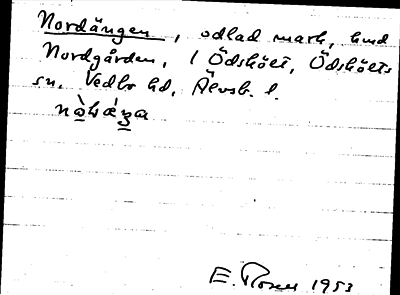 Nordängen, odlad mark, hmd
Nordgården, 1 Ödskölt, Ödskölts
sn. Vedbo hd, Älvsb. l.
E. Rosell 1953